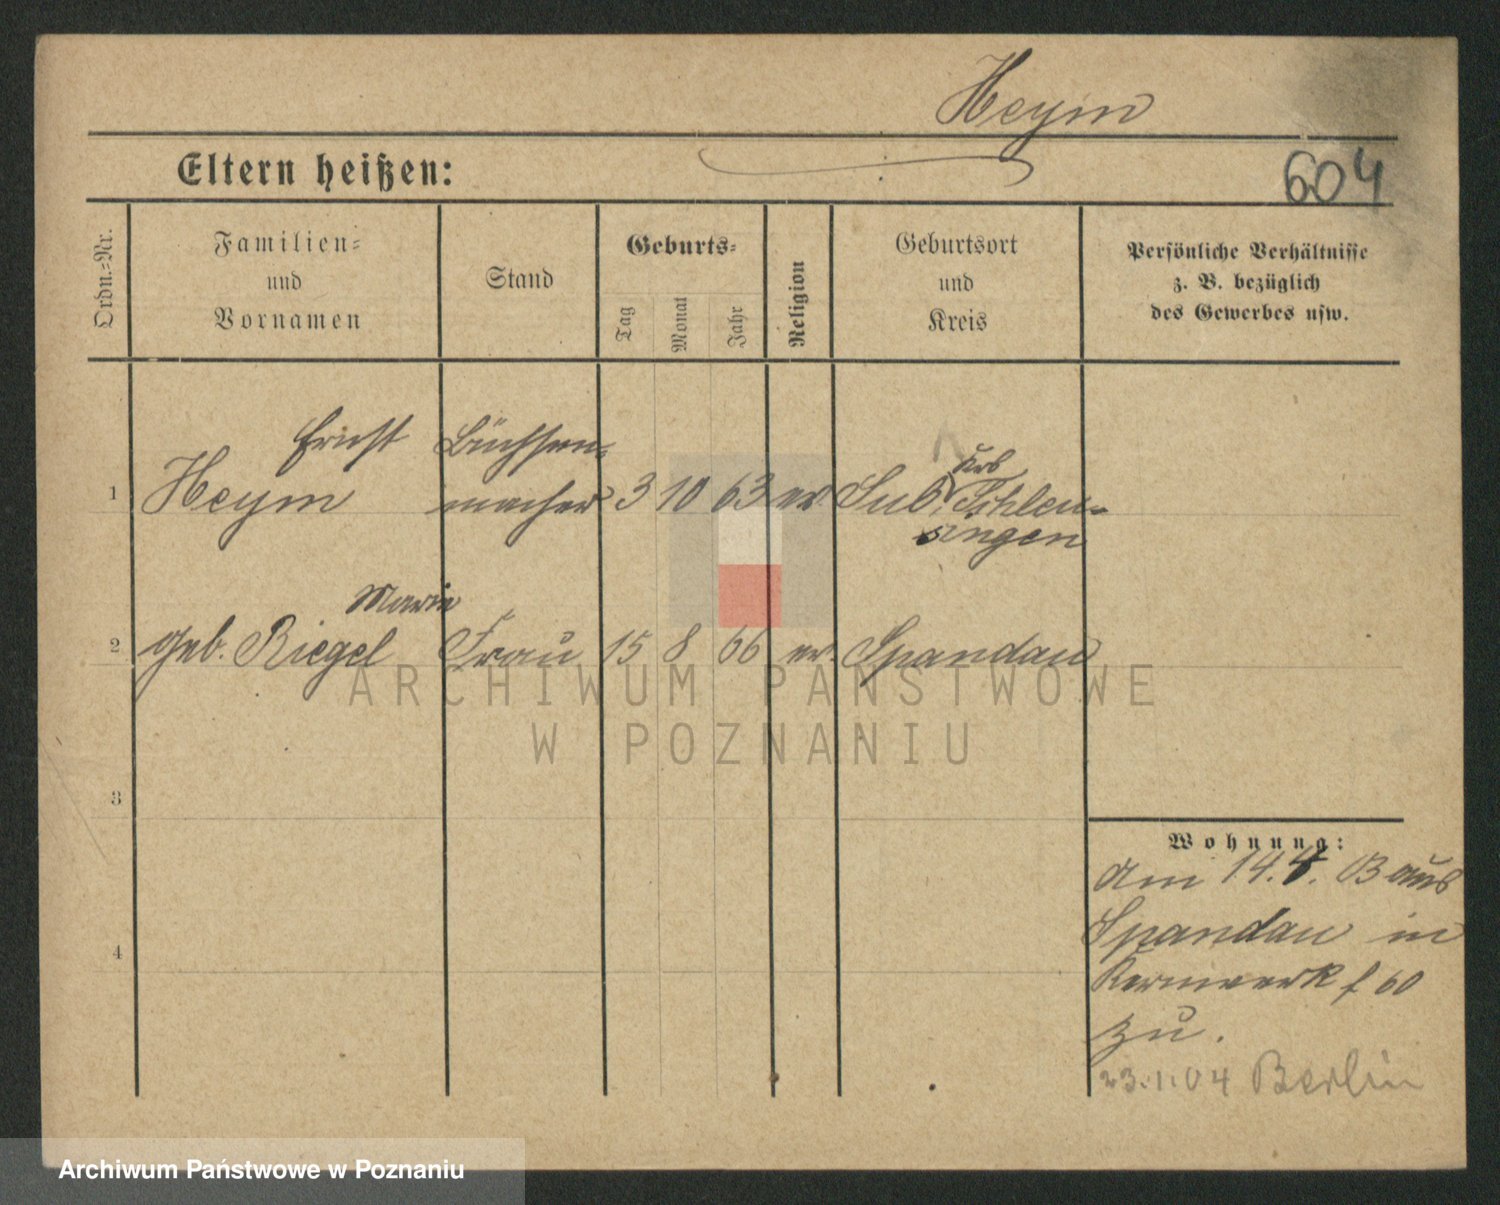 Heym
Eltern heißen:
604
Ordn.-Nr.
Familien-
und
Vornamen
Stand
Geburts-
Tag
Monat
Jahr
Religion
Geburtsort
und
Kreis
Persönliche Verhältnisse
z. B. bezüglich
des Gewerbes usw.
Ernst Büchsen-
1 Heym macher 3 10 63 ev Suhl Schleu-
singen
Marie
2 geb. Riegel Frau 15 8 66 ev. Spandau
3
4
Wohnung:
Am 14.4. 03 aus
Spandau in
Kernwerk f 60
zu.
23.1.04 Berlin
ARCHIWUM PAŃSTWOWE
W POZNANIU
Archiwum Państwowe w Poznaniu